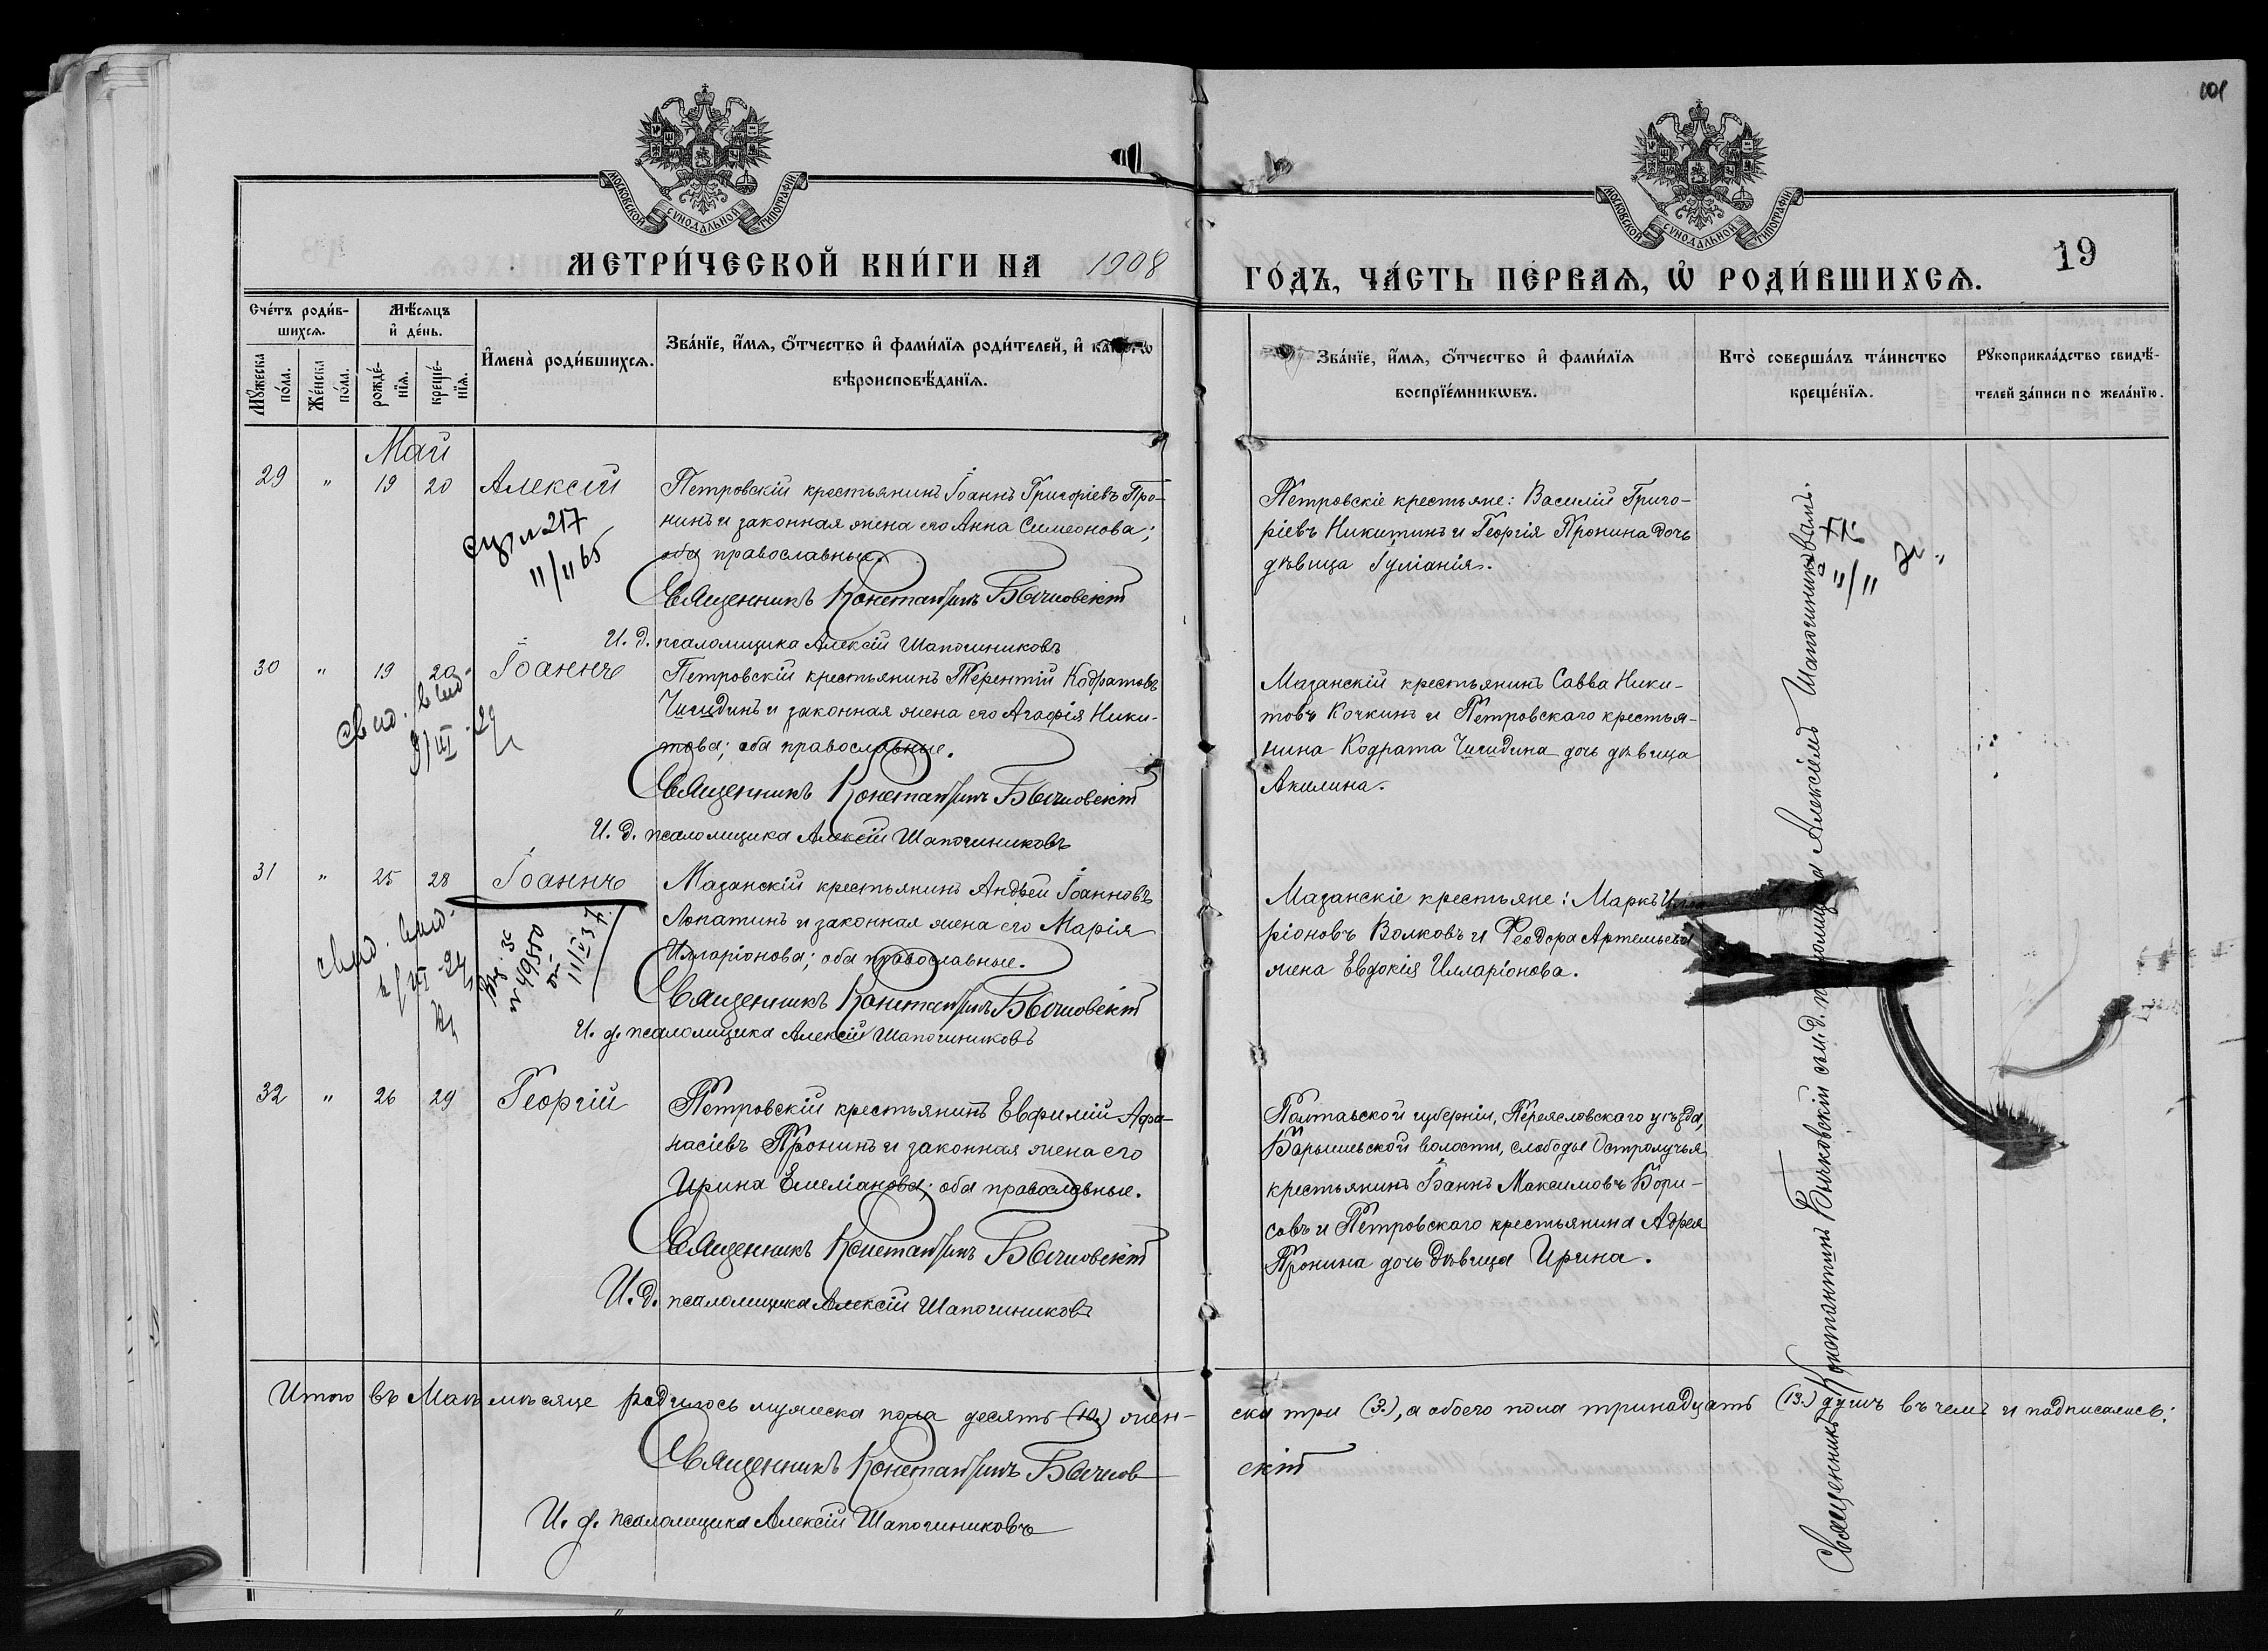 101
МОСКОВСКОЙ СѴНОДАЛЬНОЙ ТИПОГРАФИИ
МОСКОВСКОЙ СѴНОДАЛЬНОЙ ТИПОГРАФИИ
МЕТРИ́ЧЕСКОЙ КНИ́ГИ НА 1908
ГО́ДЪ, ЧА́СТЬ ПЕ́РВАѦ, Ѡ҆ РОДИ́ВШИХСѦ.
19
Сче́тъ роди́в-
шихсѧ.
Мѣ́сѧцъ
и҆ де́нь.
Мꙋ́жеска
по́ла.
Же́нска
по́ла.
рожде́-
нїѧ.
креще́-
нїѧ.
И҆мена̀ роди́вшихсѧ.
Зва́нїе, и҆́мѧ, ѻ҆́тчество и҆ фами́лїѧ роди́телей, и҆
вѣроисповѣ́данїѧ.
Зва́нїе, и҆́мѧ, ѻ҆́тчество и҆ фами́лїѧ
воспрїе́мникѡвъ.
Кто̀ соверша́лъ та́инство
креще́нїѧ.
Рꙋкоприкла́дство свидѣ́-
телей за́писи по жела́нїю.
Май
29 " 19 20 Алексій
№ 217
11/II 65
Петровскій крестьянинъ Іоаннъ Григоріевъ Про-
нинъ и законная жена его Анна Симеонова;
оба православные.
Священникъ Константинъ Бычковскій
И. д. псаломщика Алексій Шапочниковъ
Петровскіе крестьяне: Василій Григо-
ріевъ Никитинъ и Георгія Пронина дочь
дѣвица Іуліанія.
30 " 19 20 Іоаннъ
свид.
9/III 29
Петровскій крестьянинъ Терентій Кодратовъ
Чигидинъ и законная жена его Агафія Ники-
това; оба православные.
Священникъ Константинъ Бычковскій
И. д. псаломщика Алексій Шапочниковъ
Мазанскій крестьянинъ Савва Ники-
товъ Кочкинъ и Петровскаго крестья-
нина Кодрата Чигидина дочь дѣвица
Акилина.
31 " 25 28 Іоаннъ
свид.
№ 49550
от
11/IV 37
Мазанскій крестьянинъ Андрей Іоанновъ
Лопатинъ и законная жена его Марія
Илларіонова; оба православные.
Священникъ Константинъ Бычковскій
И. д. псаломщика Алексій Шапочниковъ
Мазанскіе крестьяне: Маркъ Илла-
ріоновъ Волковъ и Ѳеодора Артемьева
жена Евдокія Илларіонова.
32 " 26 29 Георгій
Петровскій крестьянинъ Евфимій Афа-
насіевъ Пронинъ и законная жена его
Ирина Емеліанова; оба православные.
Священникъ Константинъ Бычковскій
И. д. псаломщика Алексій Шапочниковъ
Полтавской губерніи, Переясловскаго уѣзда,
Барышевской волости, слободы Остролучья
крестьянинъ Іоаннъ Максимовъ Бори-
совъ и Петровскаго крестьянина Адрея
Пронина дочь дѣвица Ирина.
Священникъ Константинъ Бычковскій съ и. д. псаломщика Алексіемъ Шапочниковымъ.
Итого въ Маѣ мѣсяце родилось мужеска пола десять (10.) жен-
ска три (3.), а обоего пола тринадцать (13.) душъ въ чемъ и подписались:
Священникъ Константинъ Бычков-
скій
И. д. псаломщика Алексій Шапочниковъ